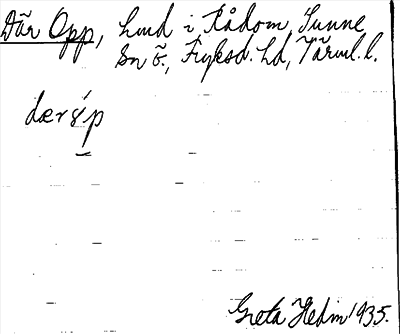 Där Opp, hmd i Rådom, Sunne
Sn ö., Fryksd. hd, Värml. l.
dærɞ́p
Greta Hedin 1935.